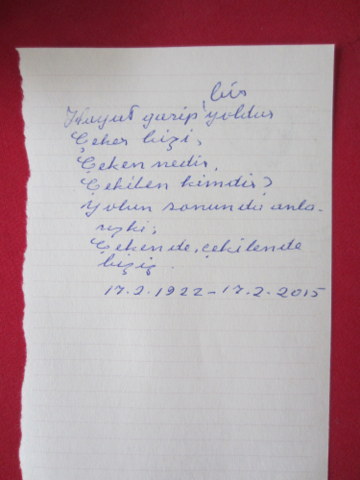 bir
Hayat garip yoldur
Çeker bizi,
Çeken nedir,
Çekilen kimdir?
Yolun sonunda anla-
rızki,
Çekende, çekilende
biziz.
17.2.1922 - 17.2.2015